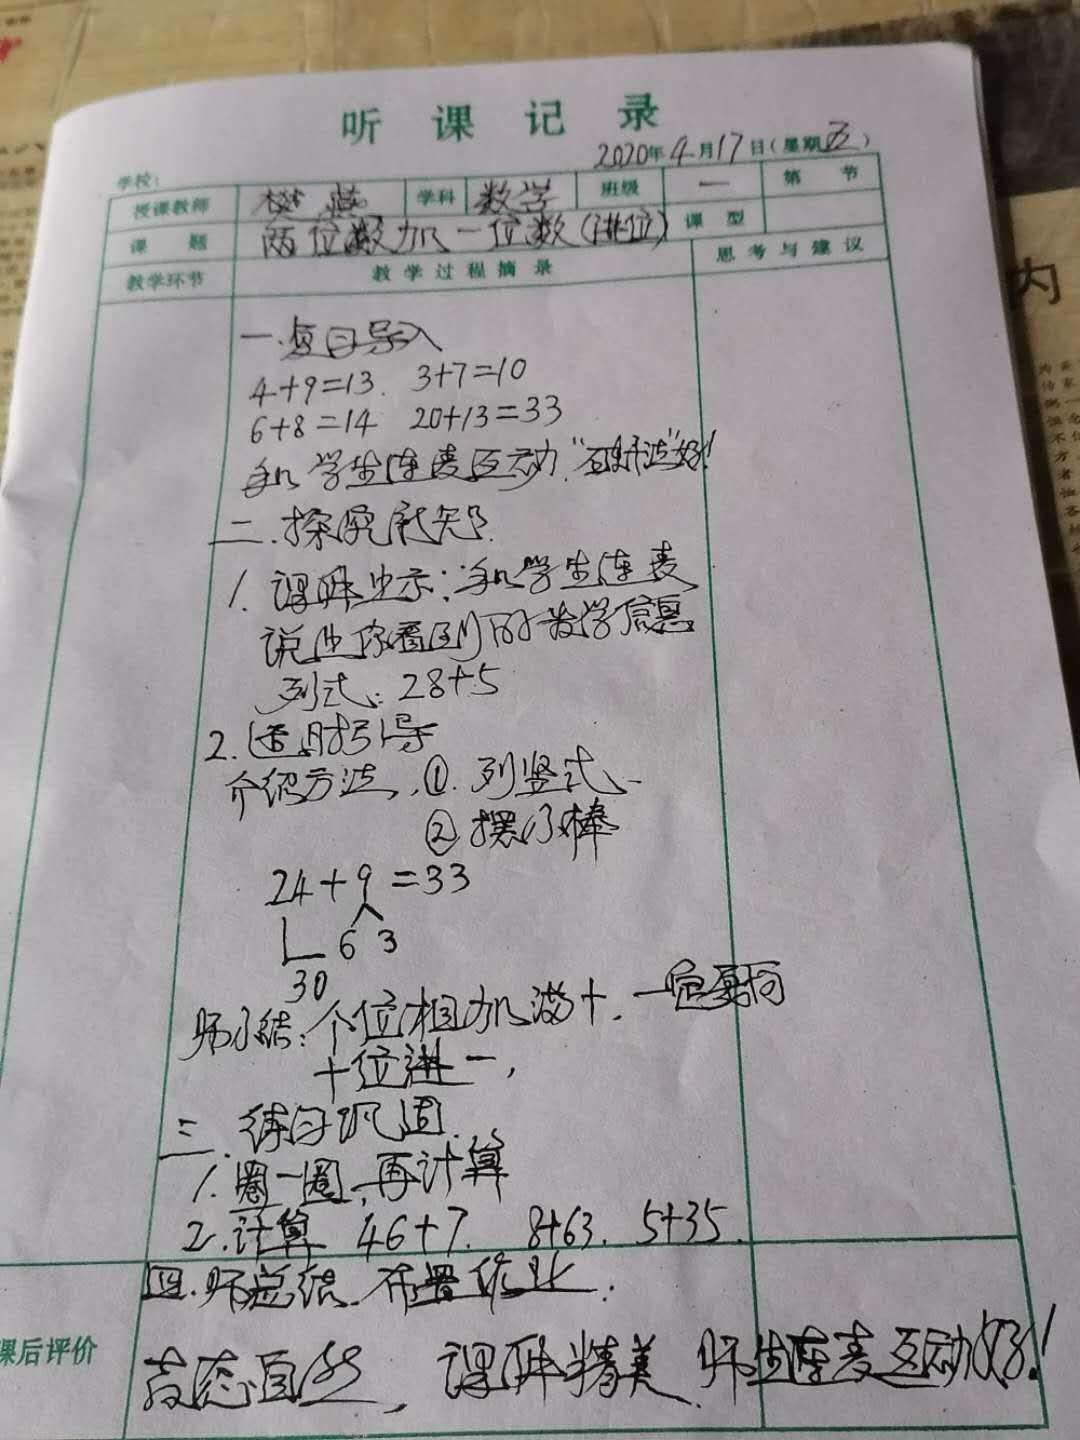 听课记录
2020年4月17日(星期五)
学校:
授课教师 樊燕 学科 数学 班级 一 第 节
课题 两位数加一位数(进位) 课型
教学环节 教学过程摘录 思考与建议
一.复习导入
4+9=13. 3+7=10
6+8=14 20+13=33
和学生连麦互动.
二.探究新知.
1.课件出示:和学生连麦
说出你看到的数学信息
列式:28+5
2.适时引导
介绍方法,①.列竖式.
②摆小棒
24+9=33
6 3
30
师小结:个位相加满十.一定要向
十位进一,
三.练习巩固.
1.圈一圈,再计算
2.计算 46+7. 8+63. 5+35.
四.师总结.布置作业.
课后评价
教态自然,课件精美.师生连麦互动好!
内